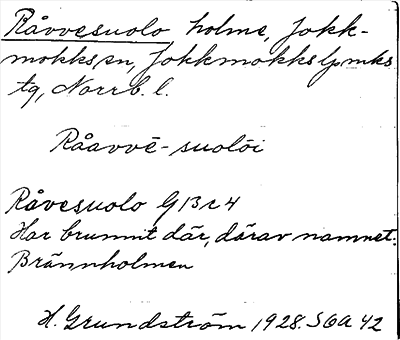 Råvvesuolo holme, Jokk-
mokks sn, Jokkmokks lpmks
tg, Norrb. l.
Råavvē-suolōi
Råvesuolo G13c4
Har brunnit där, därav namnet.
Brännholmen
H. Grundström 1928. SOA 42